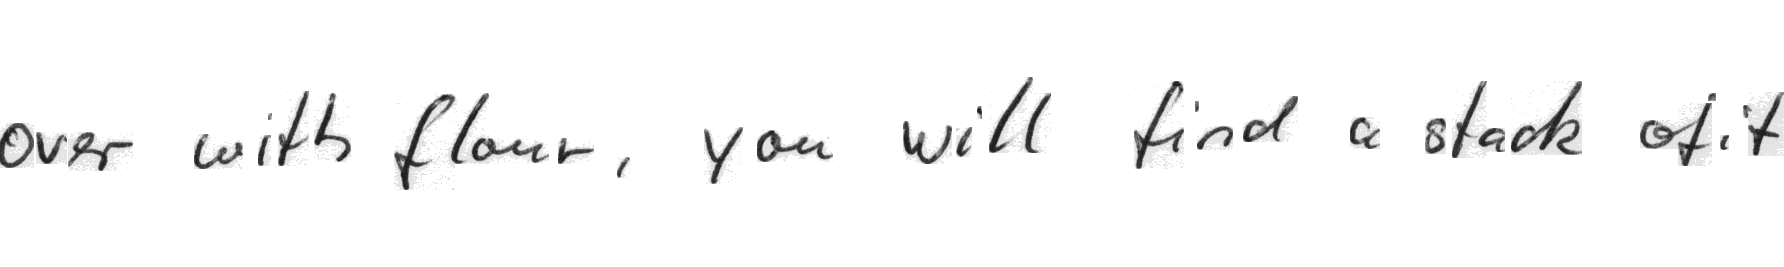 over with flour, you will find a stack of it